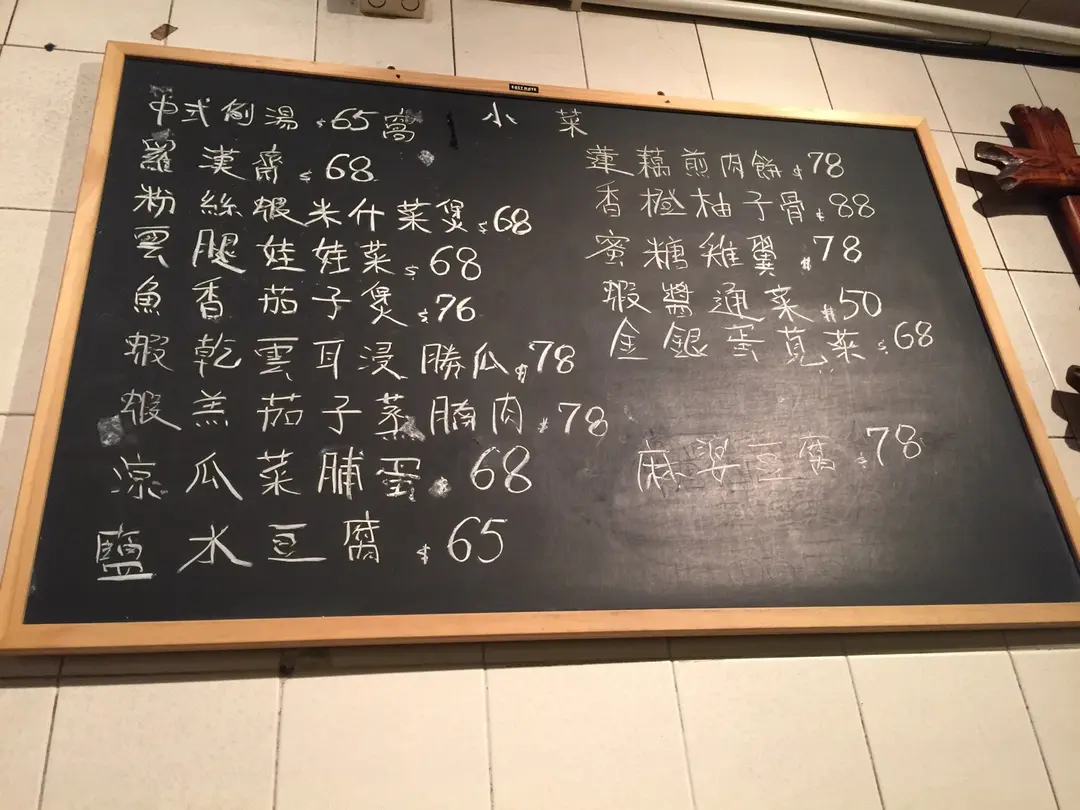 中式例湯 $65窩
小菜
羅漢齋 $68
粉絲蝦米什菜煲 $68
雲腿娃娃菜 $68
魚香茄子煲 $76
蝦乾雲耳浸勝瓜 $78
蝦羔茄子蒸腩肉 $78
涼瓜菜脯蛋 $68
鹽水豆腐 $65
蓮藕煎肉餅 $78
香橙柚子骨 $88
蜜糖雞翼 $78
蝦醬通菜 $50
金銀蛋莧菜 $68
麻婆豆腐 $78